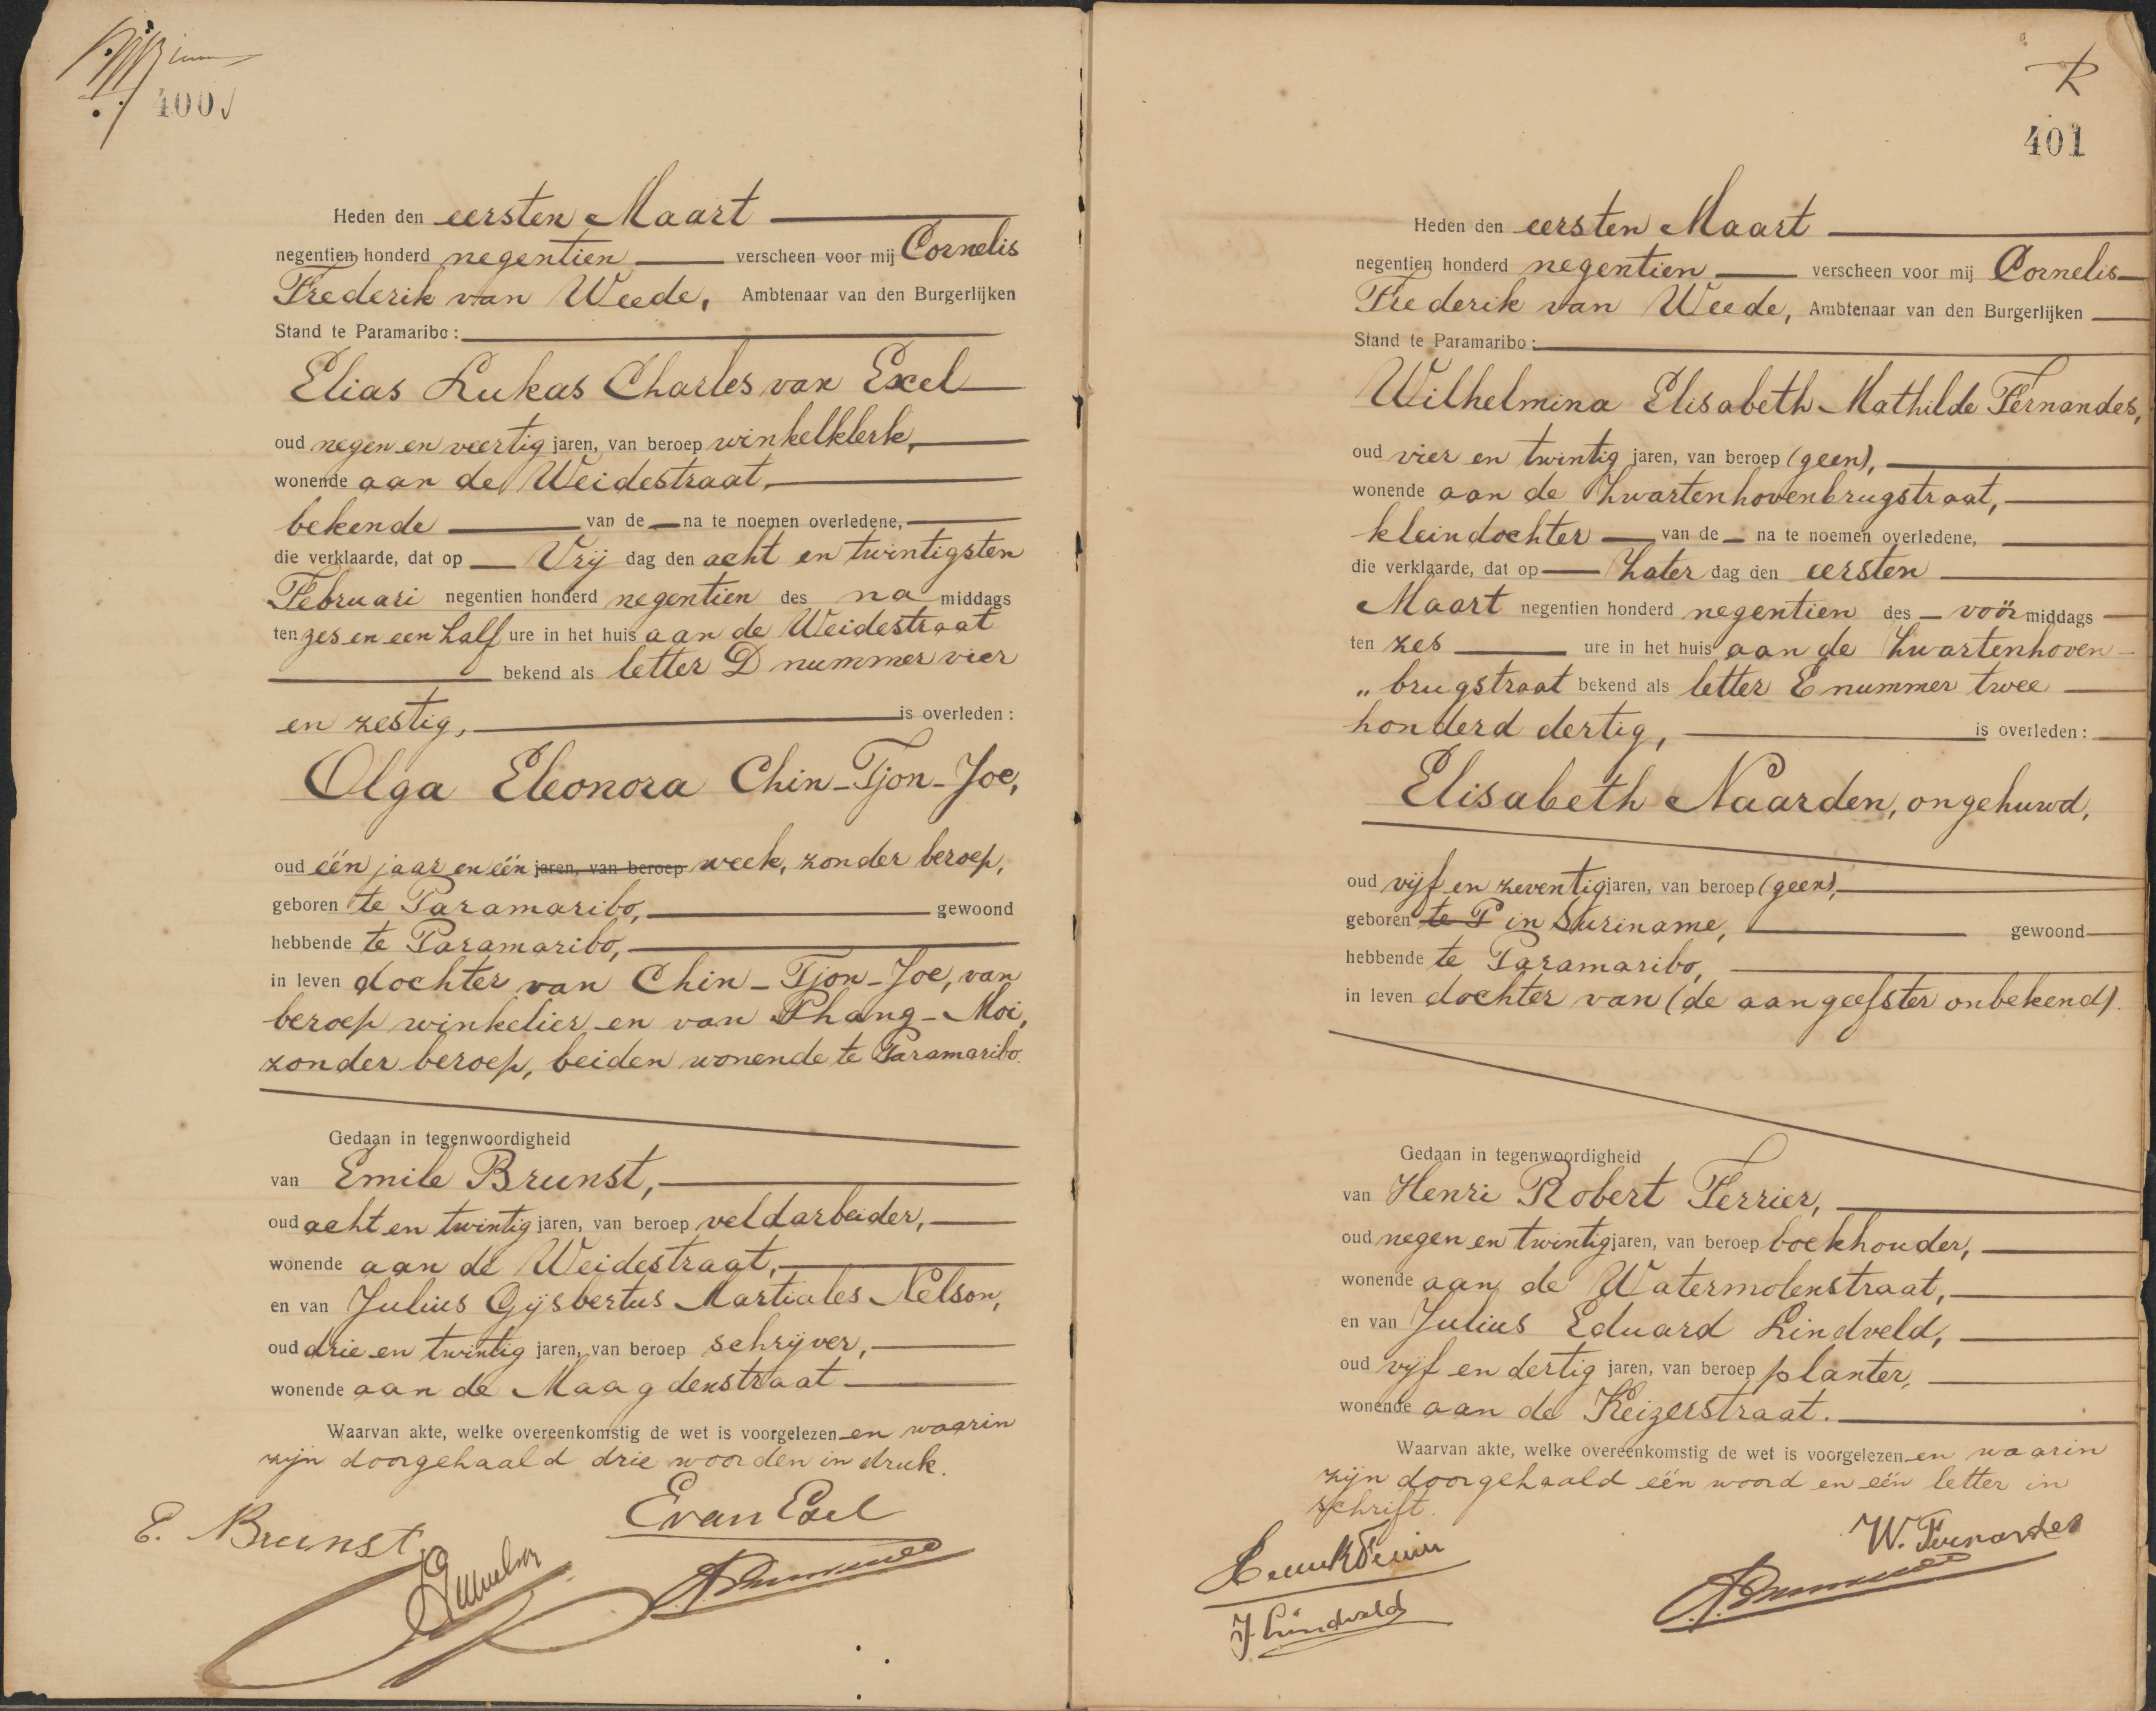 400
Heden den eersten Maart
negentien honderd negentien verscheen voor mij Cornelis
Frederik van Weede, Ambtenaar van den Burgerlijken
Stand te Paramaribo:
Elias Lukas Charles van Exel
oud negen en veertig jaren, van beroep winkelklerk,
wonende aan de Weidestraat,
bekende van de na te noemen overledene,
die verklaarde, dat op Vrij dag den acht en twintigsten
Februari negentien honderd negentien des na middags
ten zes en een half ure in het huis aan de Weidestraat
bekend als letter D nummer vier
en zestig, is overleden:
Olga Eleonora Chin-Tjon-Joe,
oud één jaar en één jaren, van beroep week, zonder beroep,
geboren te Paramaribo, gewoond
hebbende te Paramaribo,
in leven dochter van Chin-Tjon-Joe, van
beroep winkelier en van Phang-Moi,
zonder beroep, beiden wonende te Paramaribo.
Gedaan in tegenwoordigheid
van Emile Brunst,
oud acht en twintig jaren, van beroep veldarbeider,
wonende aan de Weidestraat,
en van Julius Gijsbertus Martiales Nelson,
oud drie en twintig jaren, van beroep schrijver,
wonende aan de Maagdenstraat
Waarvan akte, welke overeenkomstig de wet is voorgelezen en waarin
zijn doorgehaald drie woorden in druk.
E van Exel
E. Brunst
R
401
Heden den eersten Maart
negentien honderd negentien verscheen voor mij Cornelis
Frederik van Weede, Ambtenaar van den Burgerlijken
Stand te Paramaribo:
Wilhelmina Elisabeth Mathilde Fernandes,
oud vier en twintig jaren, van beroep (geen),
wonende aan de Zwartenhovenbrugstraat,
kleindochter van de na te noemen overledene,
die verklaarde, dat op Zater dag den eersten
Maart negentien honderd negentien des voór middags
ten zes ure in het huis aan de Zwartenhoven
„brugstraat bekend als letter E nummer twee
honderd dertig, is overleden:
Elisabeth Naarden, ongehuwd,
oud vijf en zeventig jaren, van beroep (geen),
geboren te P in Suriname, gewoond
hebbende te Paramaribo,
in leven dochter van (de aangeefster onbekend).
Gedaan in tegenwoordigheid
van Henri Robert Ferrier,
oud negen en twintig jaren, van beroep boekhouder,
wonende aan de Watermolenstraat,
en van Julius Eduard Lindveld,
oud vijf en dertig jaren, van beroep planter,
wonende aan de Keizerstraat.
Waarvan akte, welke overeenkomstig de wet is voorgelezen en waarin
zijn doorgehaald één woord en één letter in
schrift.
W. Fernandes
J. Lindveld